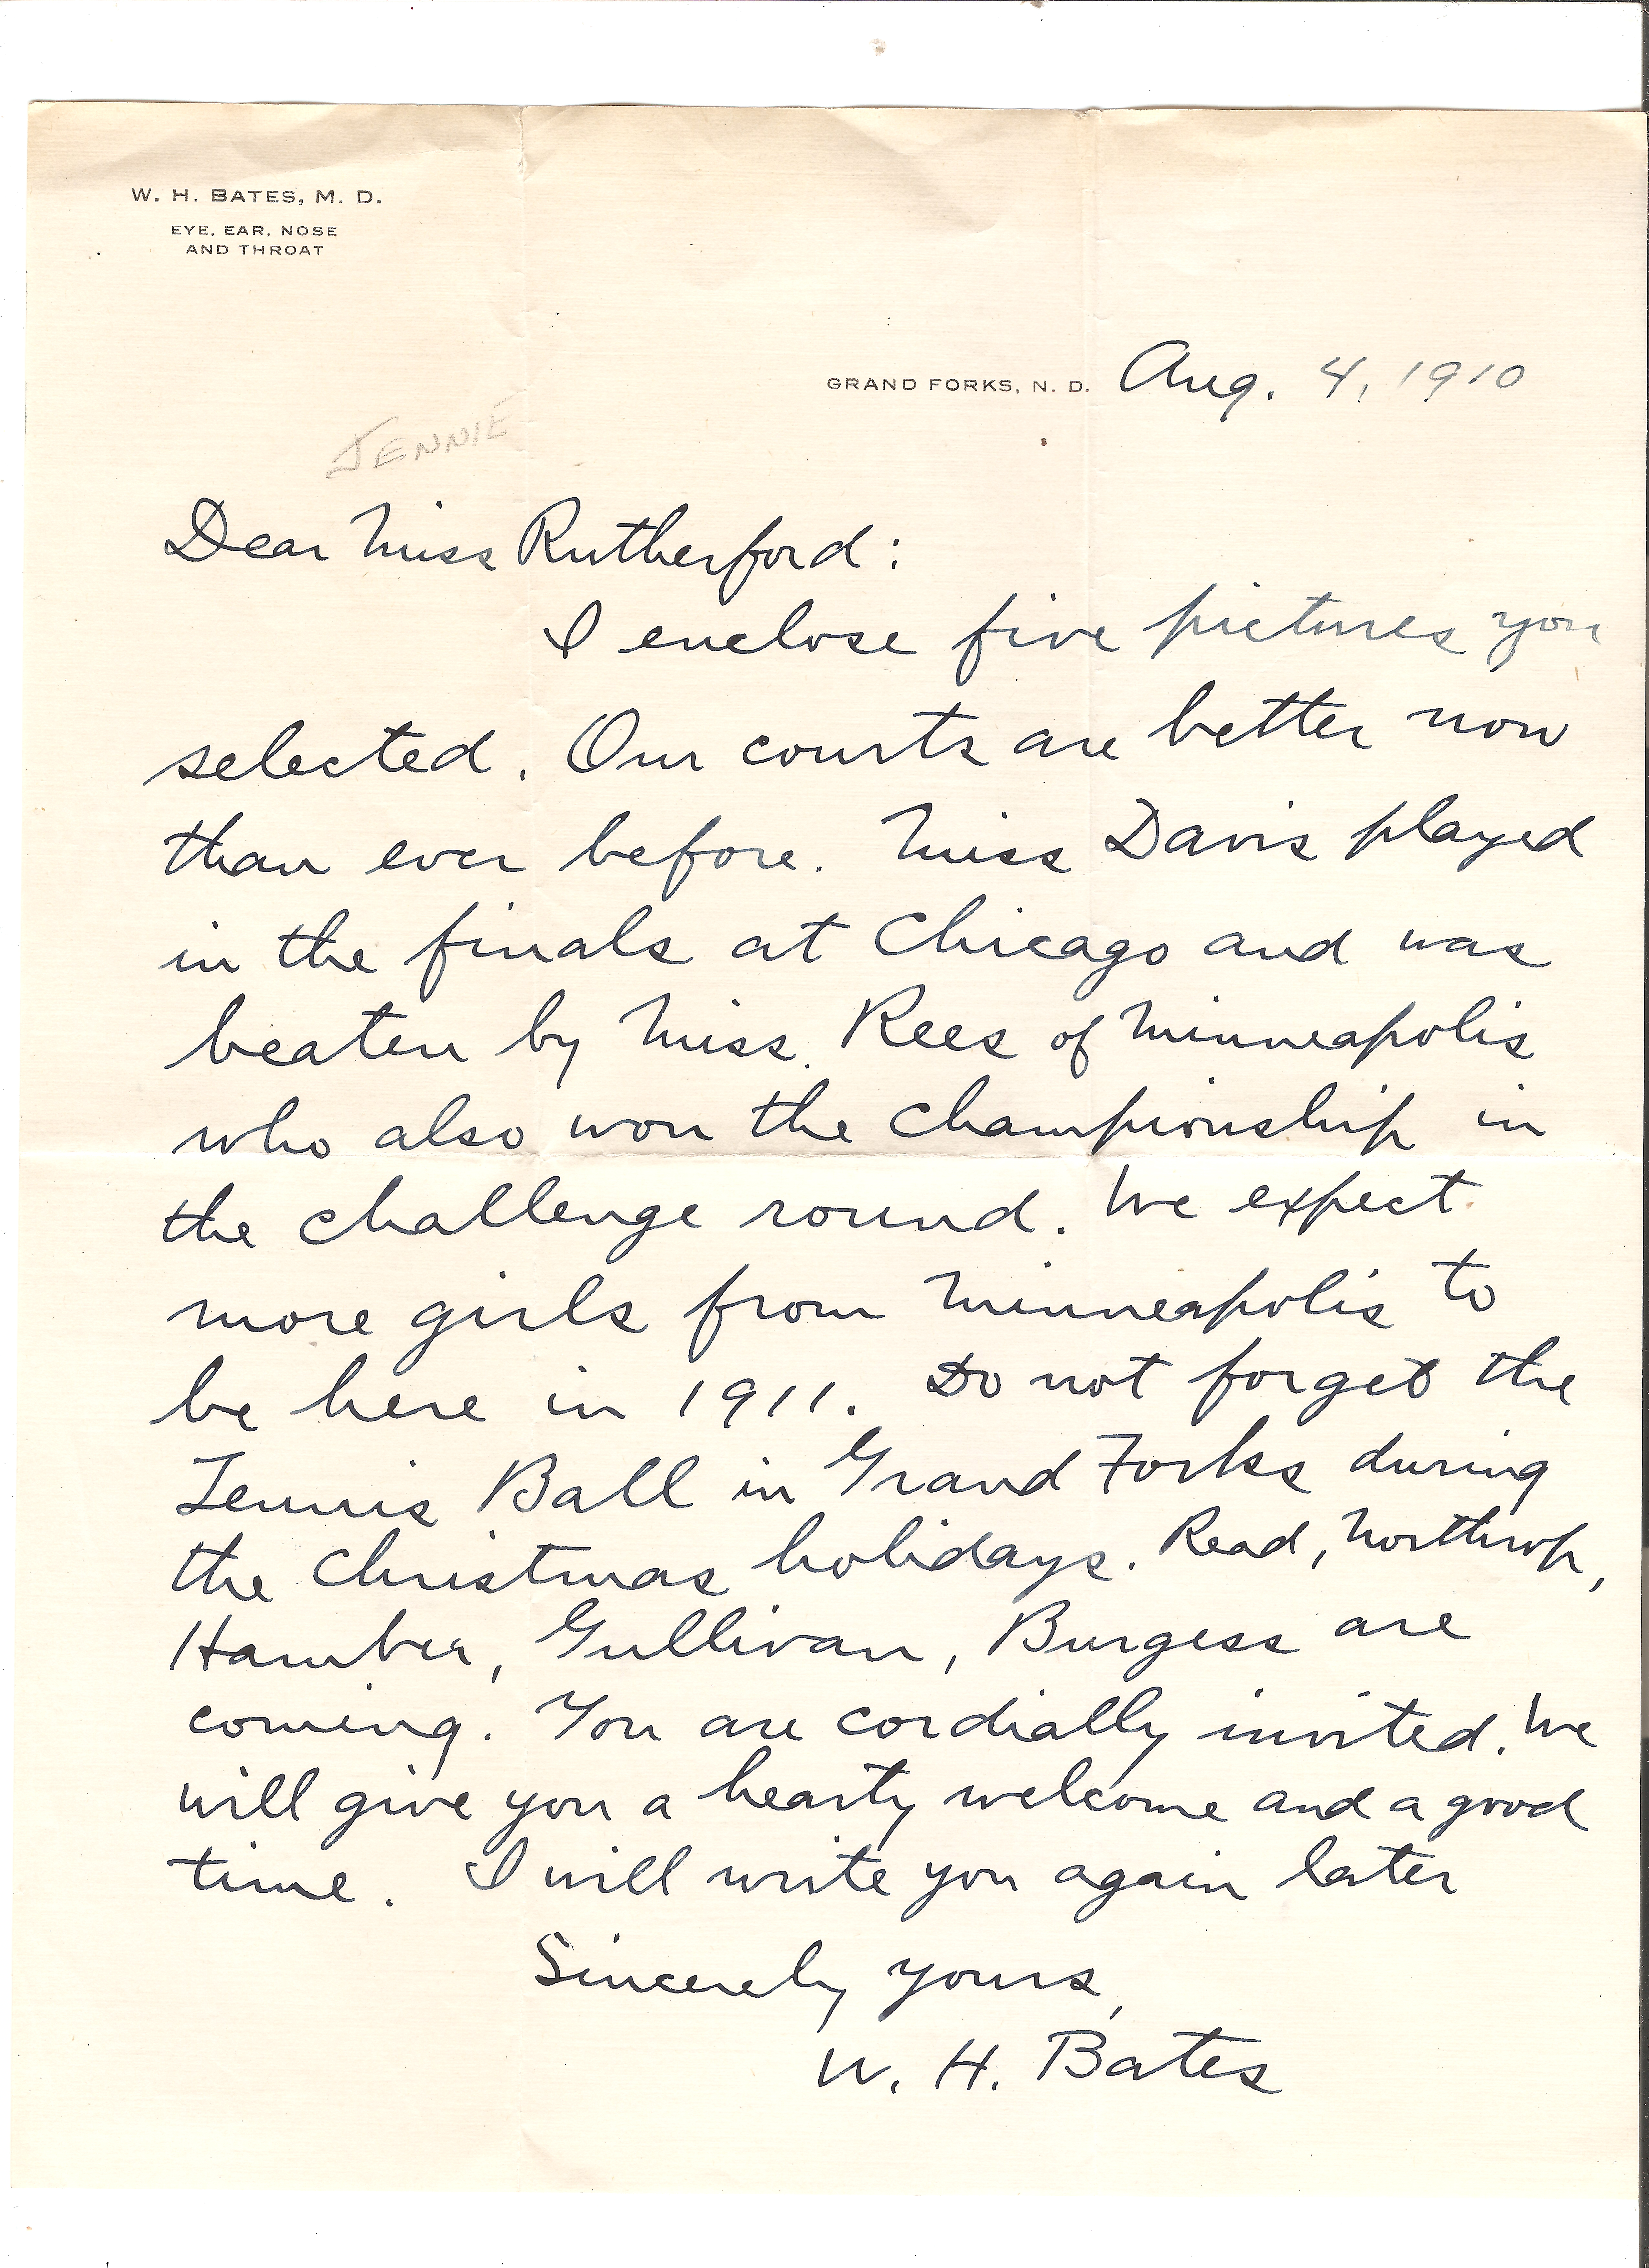 W. H. BATES, M. D.
EYE, EAR, NOSE
AND THROAT
GRAND FORKS, N. D. Aug. 4, 1910
JENNIE
Dear Miss Rutherford:
I enclose five pictures you
selected. Our courts are better now
than ever before. Miss Davis played
in the finals at Chicago and was
beaten by Miss. Rees of Minneapolis
who also won the championship in
the challenge round. We expect
more girls from Minneapolis to
be here in 1911. Do not forget the
Tennis Ball in Grand Forks during
the Christmas holidays. Read, Northrop,
Hamber, Gullivan, Burgess are
coming. You are cordially invited. We
will give you a hearty welcome and a good
time. I will write you again later
Sincerely yours,
W. H. Bates